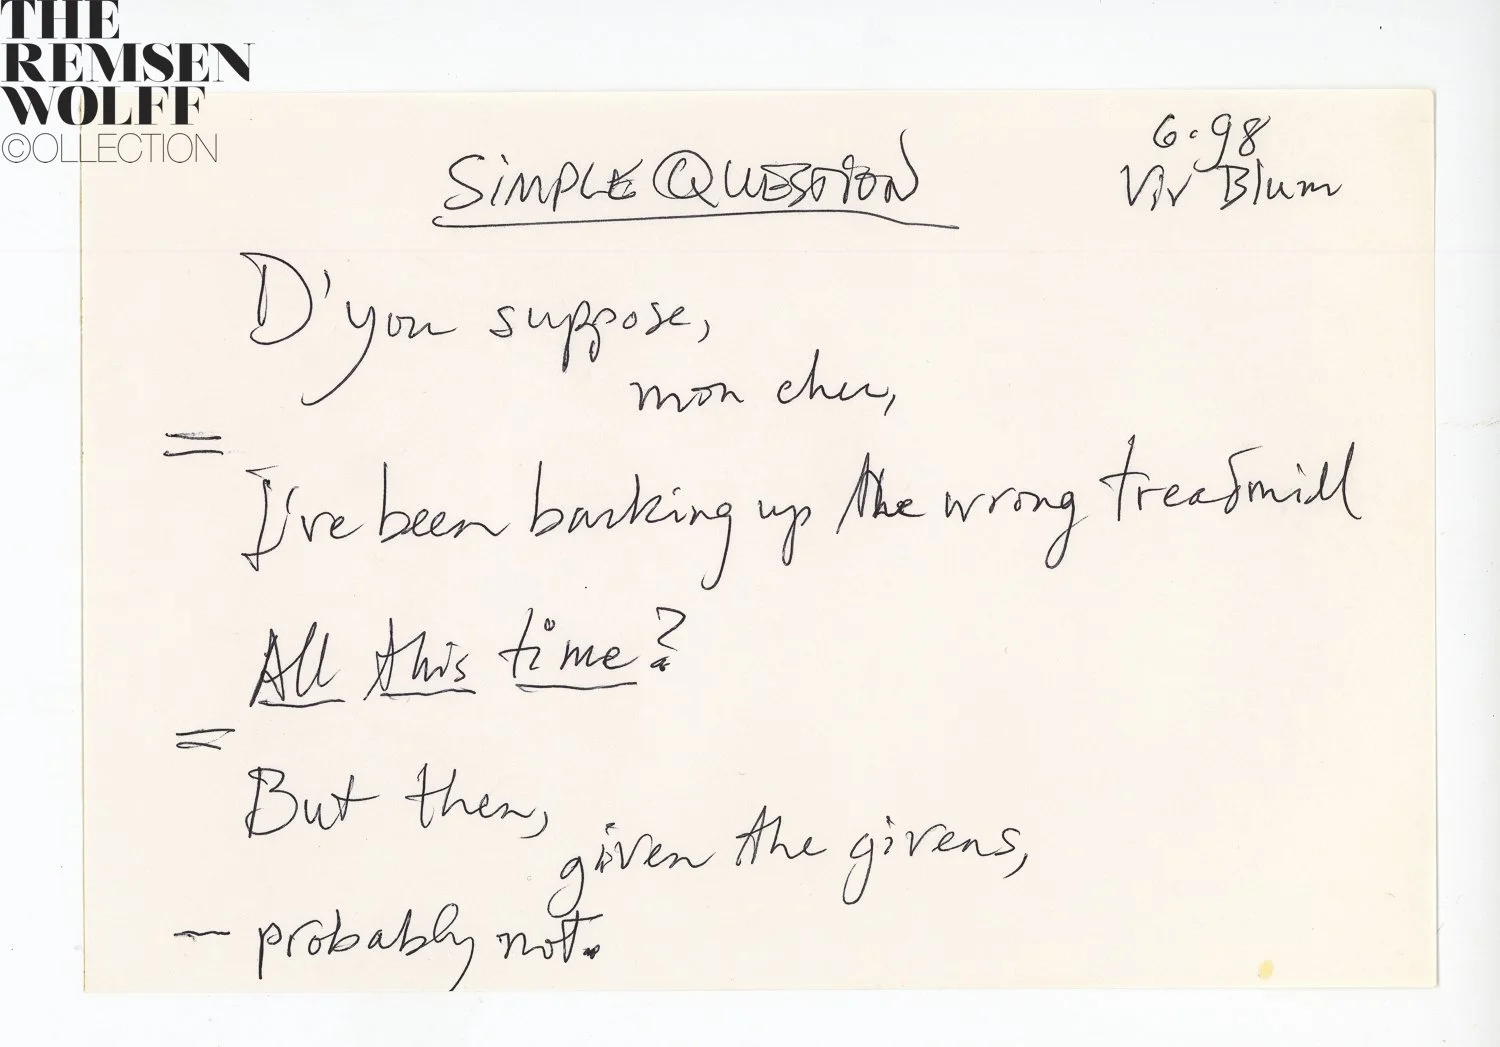 THE
REMSEN
WOLFF
©OLLECTION
6·98
Viv Blum
SiMPLE QUESTION
D'you suppose,
mon cher,
=
I've been barking up the wrong treadmill
All this time?
=
But then,
given the givens,
— probably not.